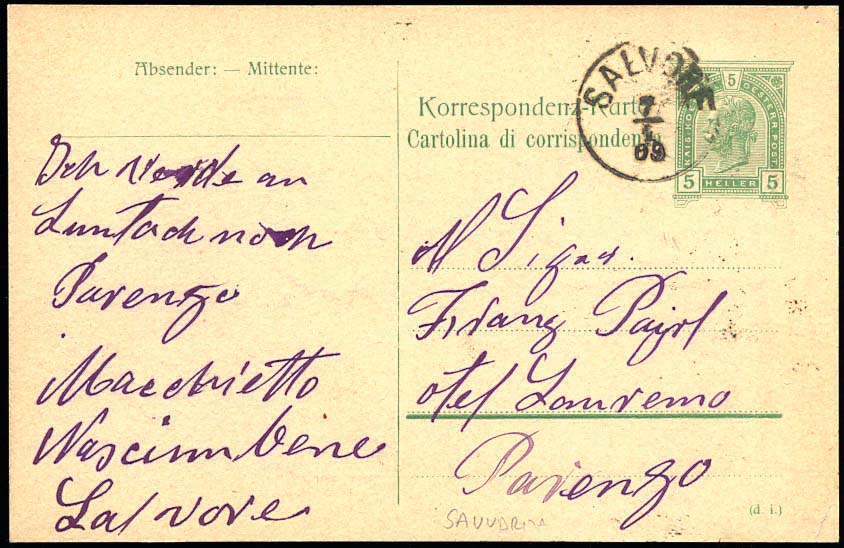 Absender: — Mittente:
Korrespondenz-Karte
Cartolina di corrispondenza
SALVORE
7
09
5
KAIS. KÖ OESTERR. POST.
5 HELLER 5
Ich an
Suntach noch
Parenzo
Macchietto
Nascimbene
Salvore
Al Sigor.
Franz Pajrl
otel Sanremo
Parenzo
(d. i.)
SAVUDRIA